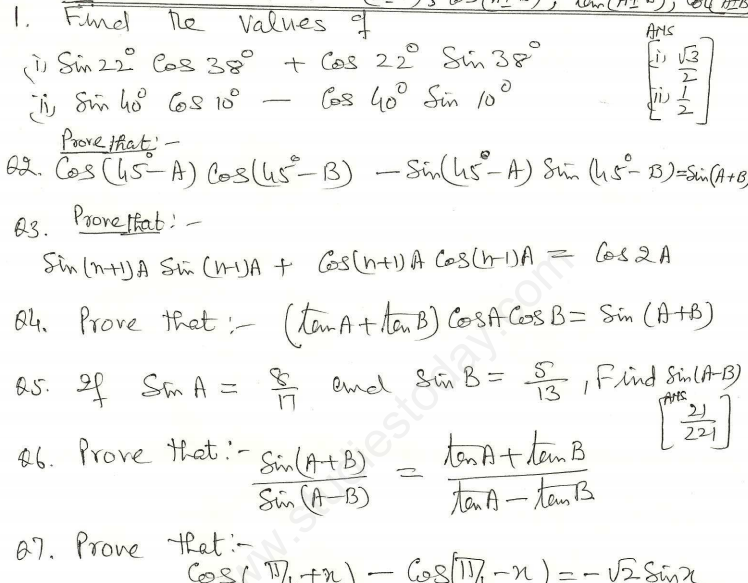 1. Find the values of
(i) Sin 22° Cos 38° + Cos 22° Sin 38°
(ii) Sin 40° Cos 10° — Cos 40° Sin 10°
ANS
[(i) √3/2
(ii) 1/2]
Prove that :-
Q2. Cos(45°-A) Cos(45°-B) - Sin(45°-A) Sin(45°-B)=Sin(A+B)
Q3. Prove that :-
Sin(n+1)A Sin(n-1)A + Cos(n+1)A Cos(n-1)A = Cos 2A
Q4. Prove that :- (tanA+tanB) CosA CosB = Sin (A+B)
Q5. If Sin A = 8/17 and Sin B = 5/13, Find Sin(A-B)
ANS
[21/221]
Q6. Prove that :- Sin(A+B)/Sin(A-B) = tanA+tanB/tanA-tanB
Q7. Prove that :-
Cos( +x) - Cos( -x) = -√2 Sinx
www.studiestoday.com